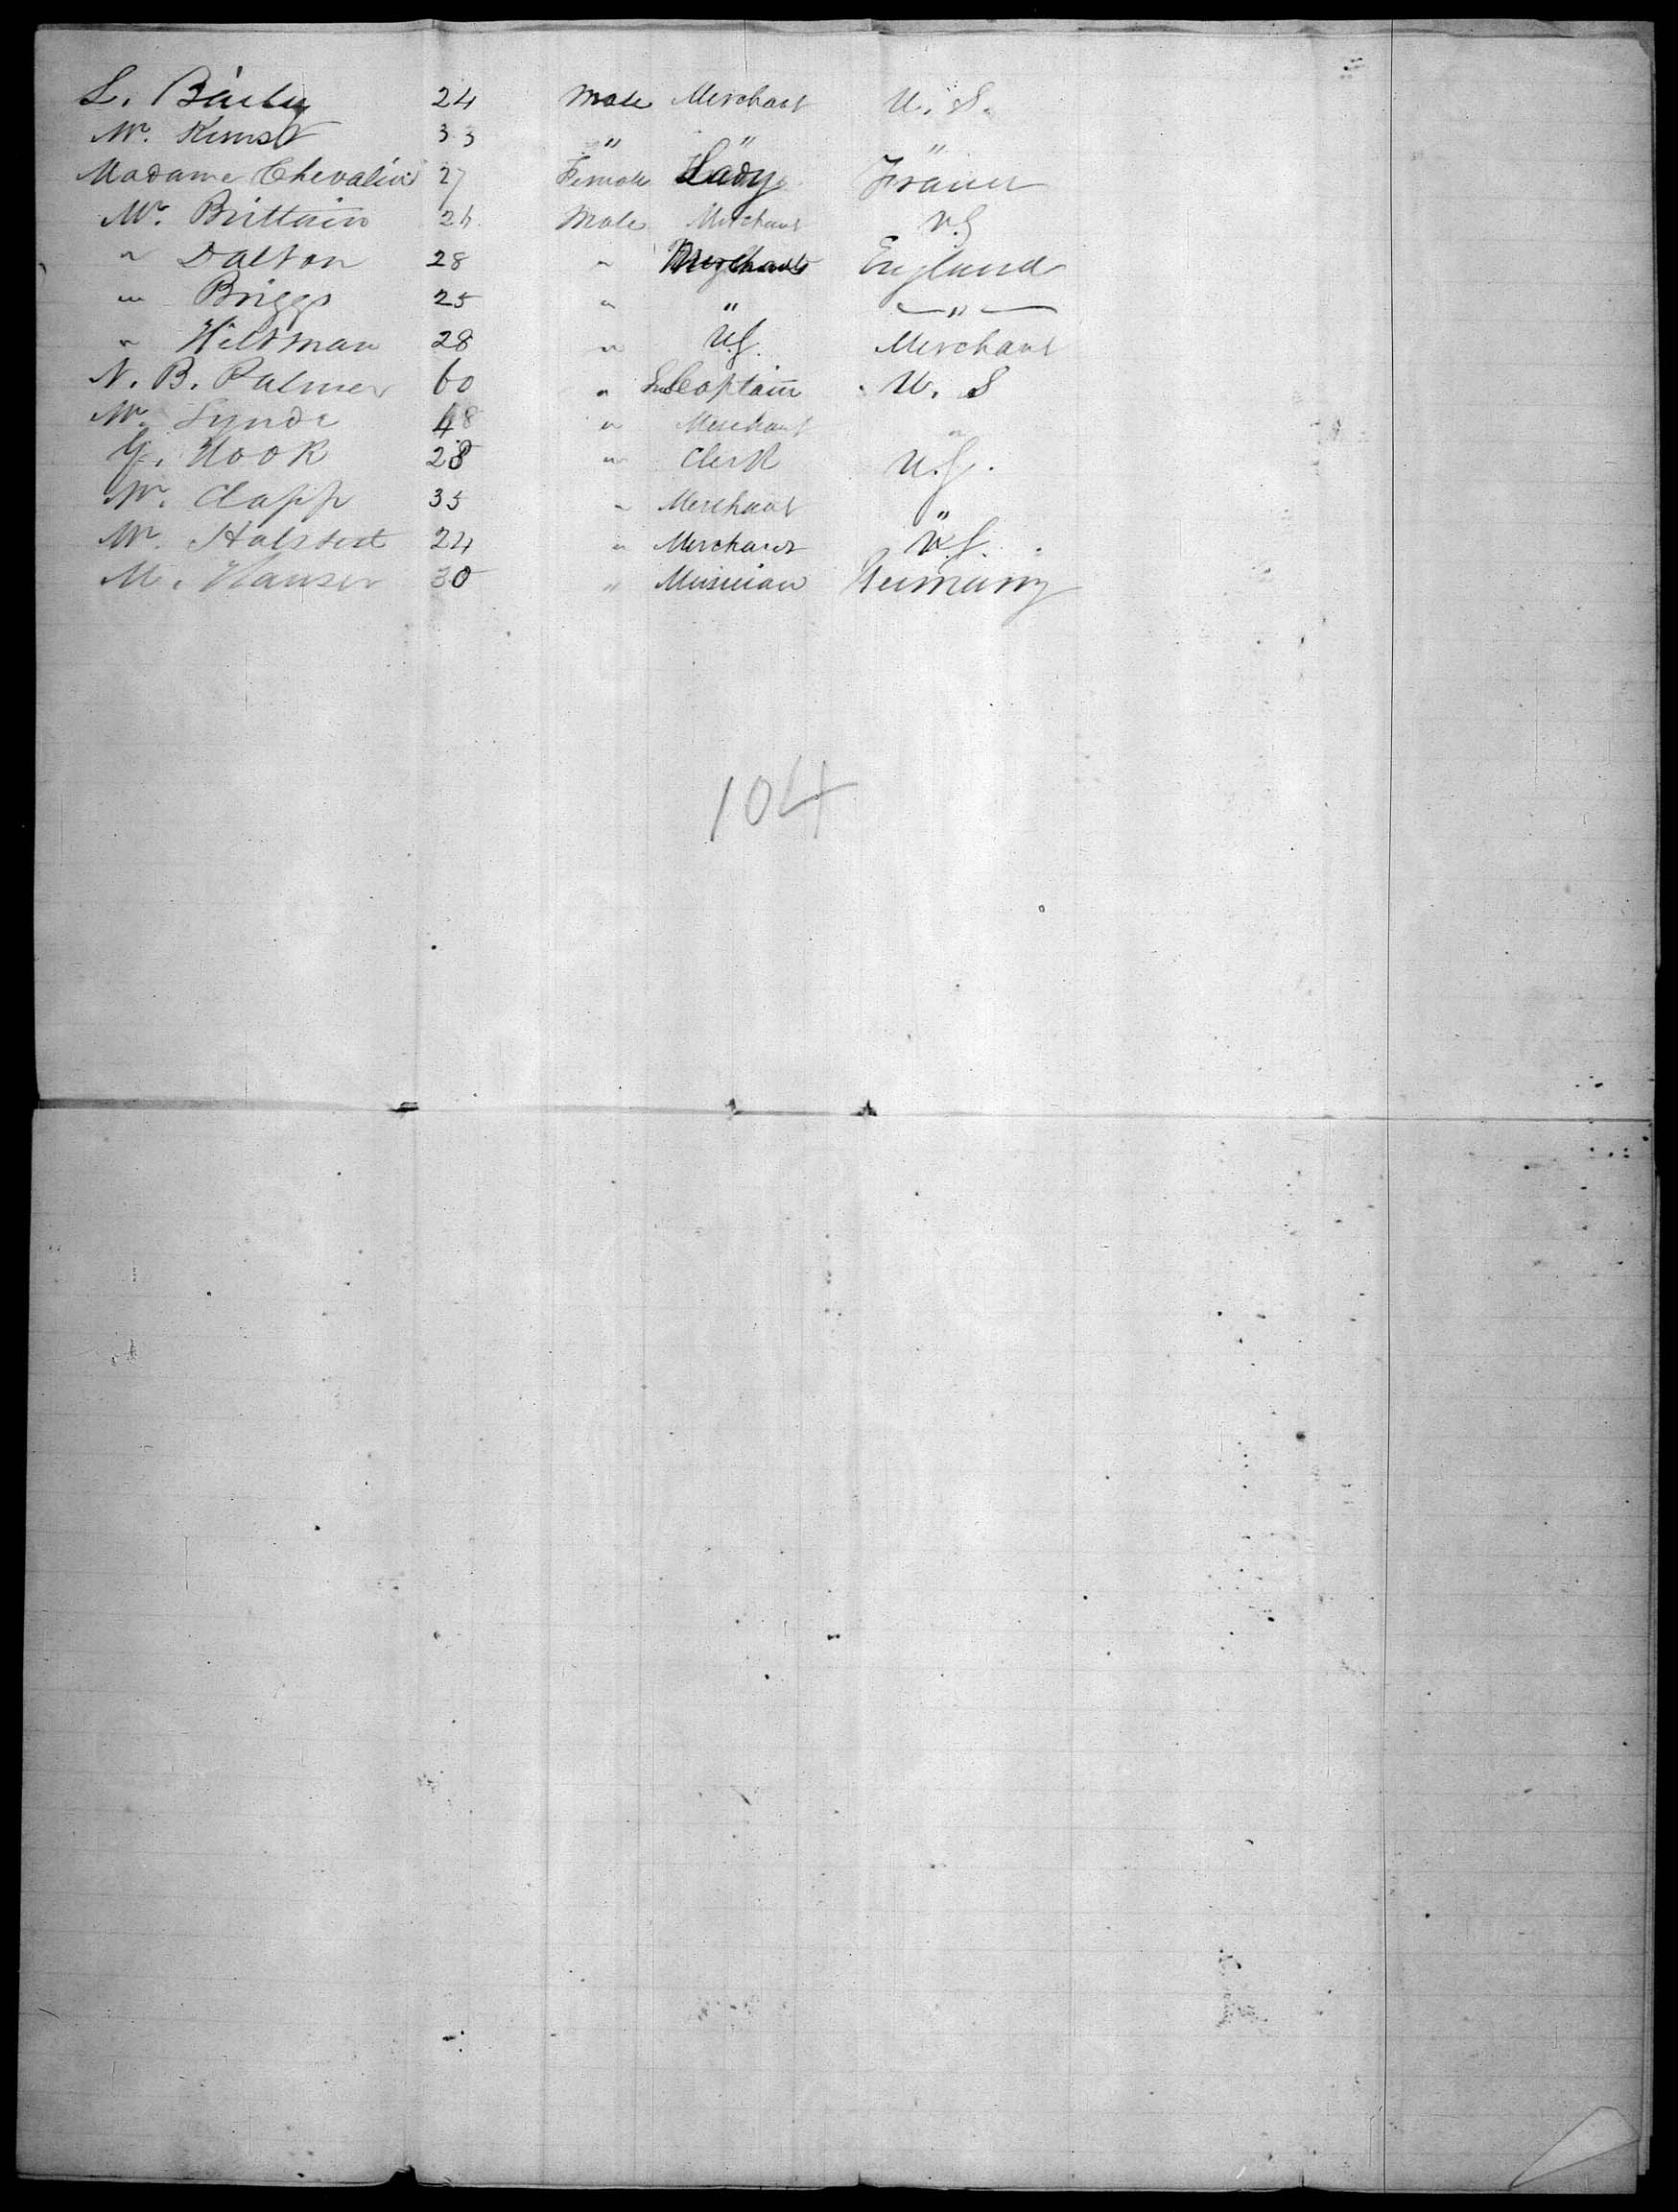 L. Baily 24 Male Merchant U. S.
Mr. Kunst 33 " " "
Madame Chevalier 27 Female Lady France
Mr. Brittain 26 Male Merchant U.S
" Dalton 28 " Merchant England
" Briggs 25 " " "
" Hiltman 28 " U.S. Merchant
N. B. Palmer 60 " Captain U. S
Mr. Lynde 48 " Merchant "
G. Hook 28 " Clerk U.S.
Mr. Clapp 35 " Merchant "
Mr. Halsted 24 " Merchant U.S.
M. Hauser 30 " Musician Germany
104